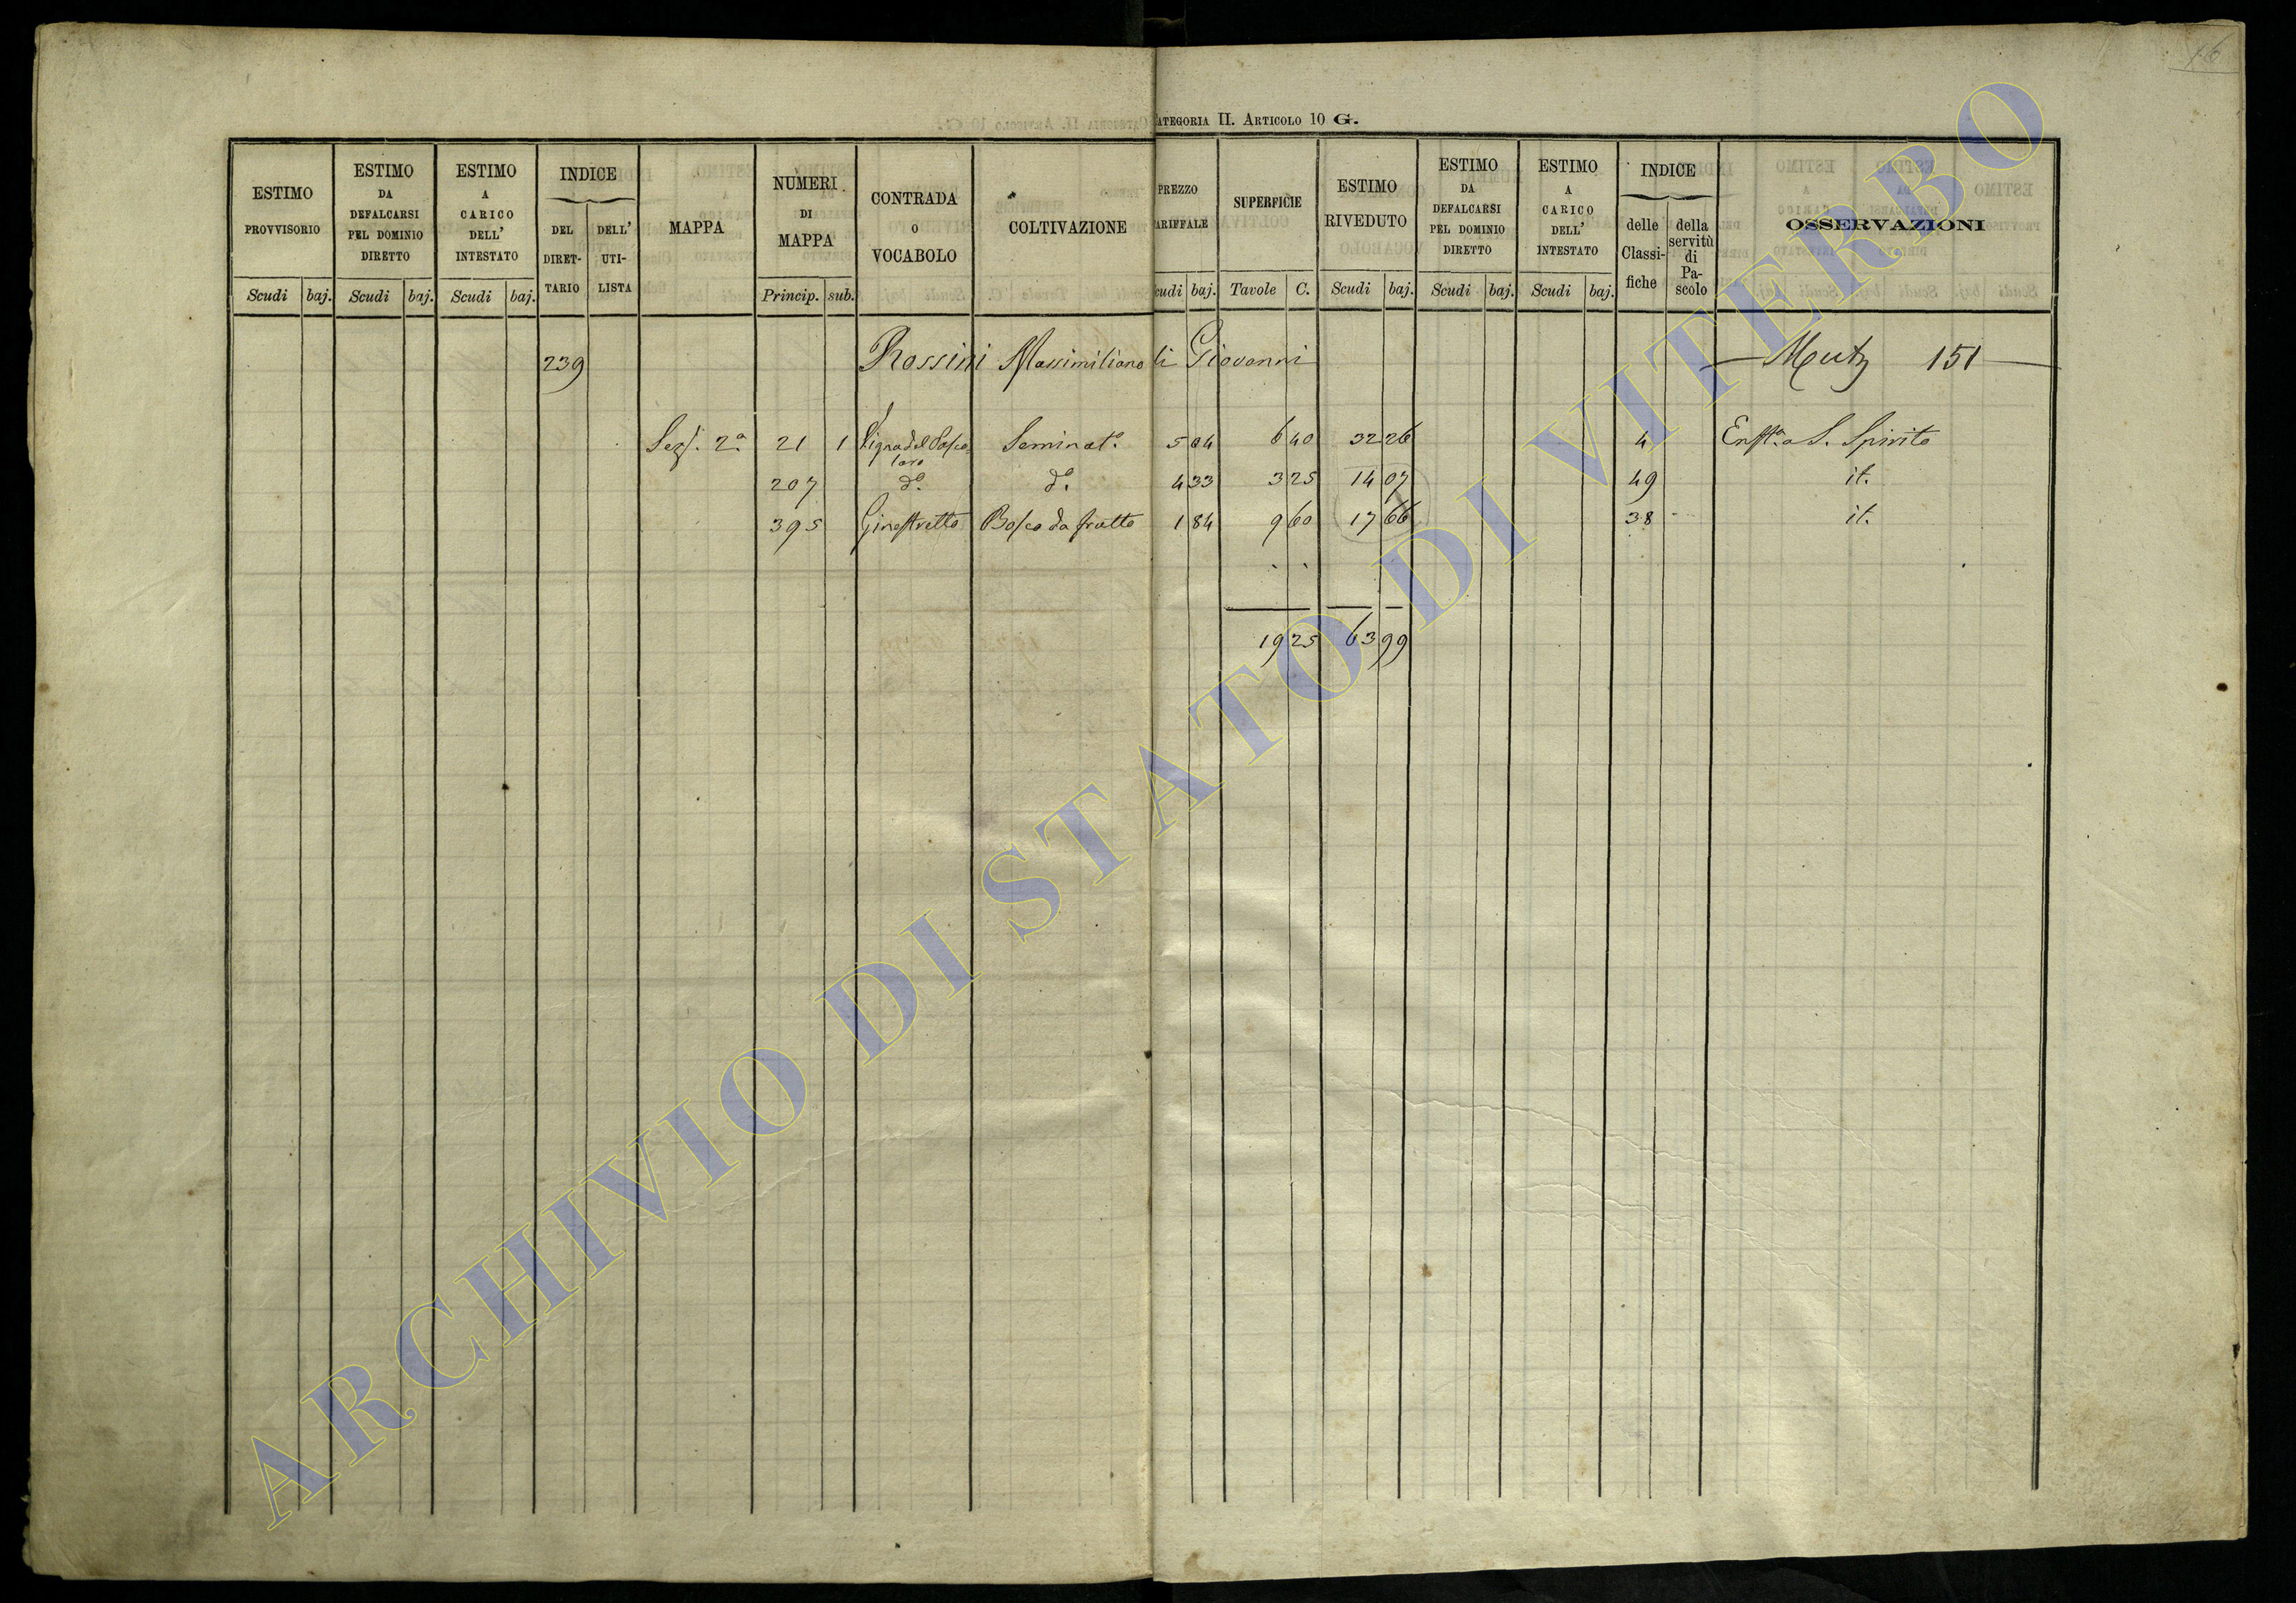 16
ATEGORIA II. ARTICOLO 10 G.
ESTIMO PROVVISORIO
Scudi baj.
ESTIMO DA DEFALCARSI PEL DOMINIO DIRETTO
Scudi baj.
ESTIMO A CARICO DELL' INTESTATO
Scudi baj.
INDICE
DEL DIRET-TARIO
DELL' UTI-LISTA
MAPPA
NUMERI DI MAPPA
Princip. sub.
CONTRADA O VOCABOLO
COLTIVAZIONE
PREZZO
ARIFFALE
cudi baj.
SUPERFICIE
Tavole C.
ESTIMO RIVEDUTO
Scudi baj.
ESTIMO DA DEFALCARSI PEL DOMINIO DIRETTO
Scudi baj.
ESTIMO A CARICO DELL' INTESTATO
Scudi baj.
INDICE
delle Classi-fiche
della servitù di Pa-scolo
OSSERVAZIONI
239 Rossini Massimiliano di Giovanni 151
Sez. 2a 21 1 Seminato. 5 04 6 40 32 26 4 S. Spirito
207 do. do. 4 33 3 25 14 07 49 it.
395 Ginestretto Bosco da frutto 1 84 9 60 17 66 38 it.
19 25 63 99
ARCHIVIO DI STATO DI VITERBO